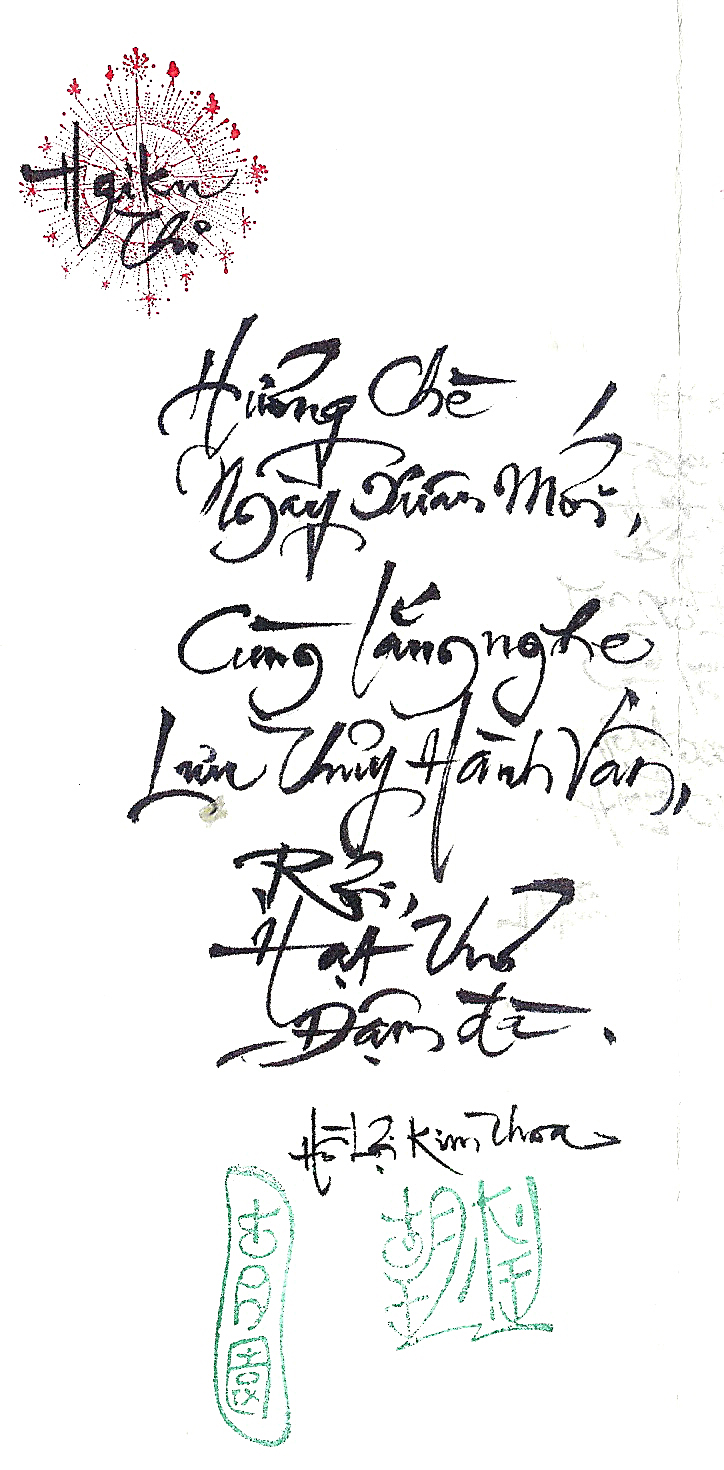 Haiku
Thơ
Hưởng Chè
Ngày Xuân Mới,
Cùng lắng nghe
Lưu Thủy Hành Vân,
Rồi,
Hạt Thơ
Đậm đà.
Hồ Lợi Kim Thoa